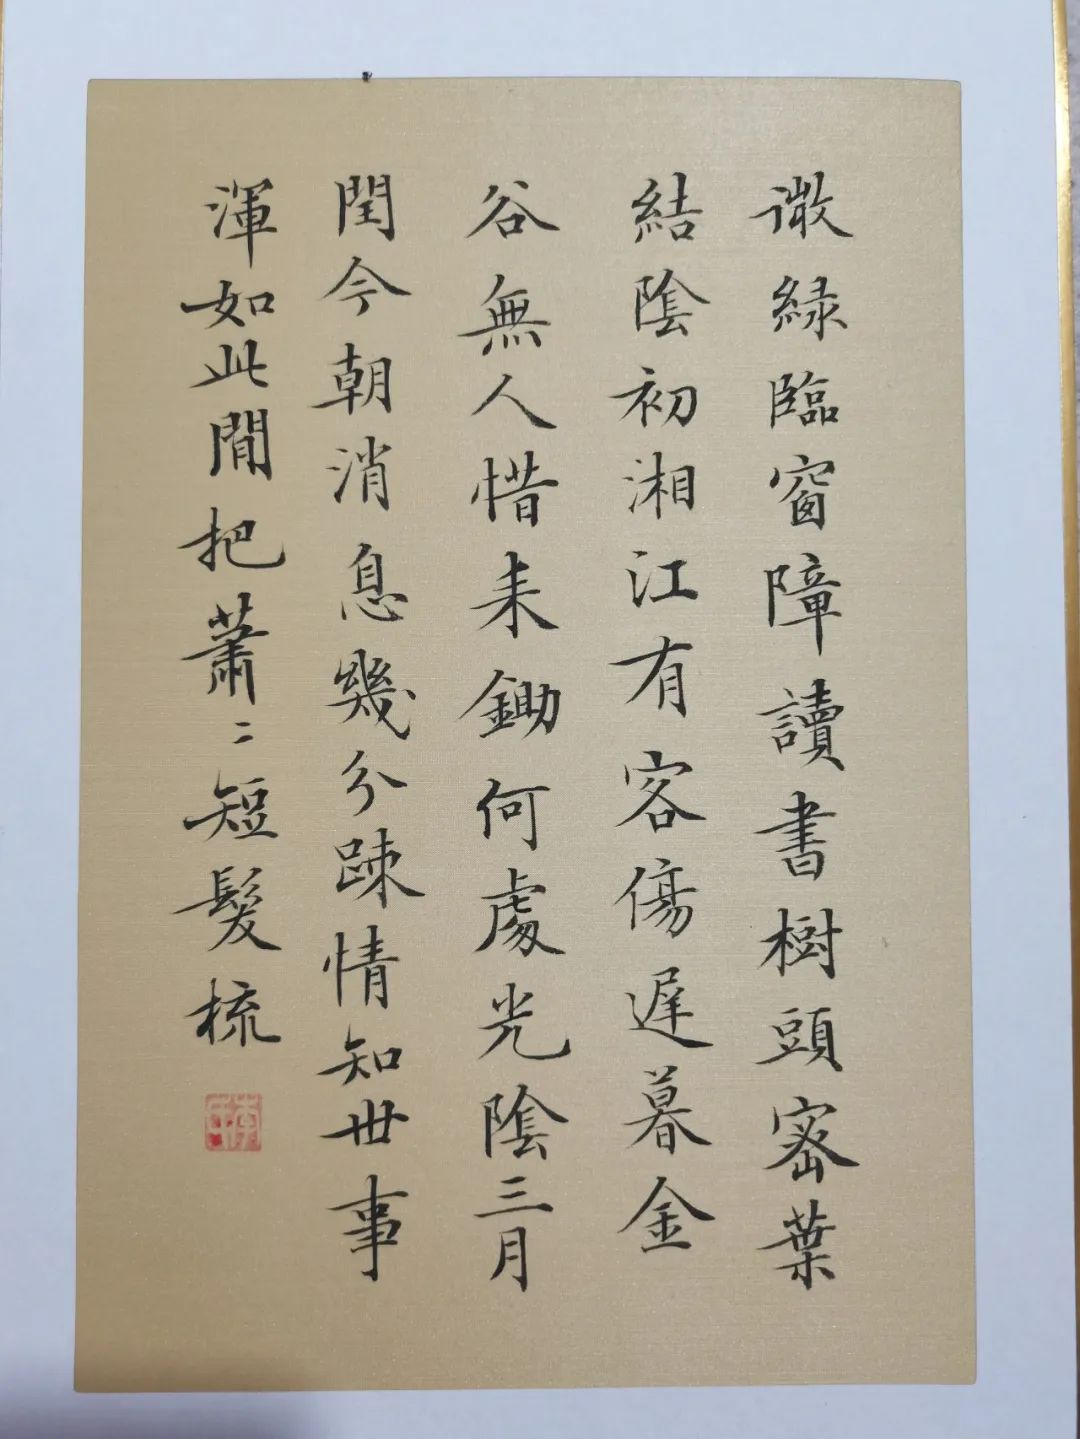 微綠臨窗障讀書樹頭密葉
結陰初湘江有客傷遲暮金
谷無人惜耒鋤何處光陰三月
閏今朝消息幾分疎情知世事
渾如此閒把蕭〻短髮梳